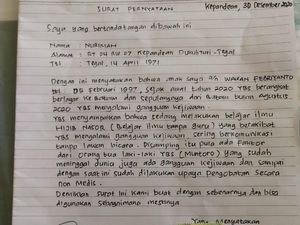 SURAT PERNYATAAN
Kepandean, 30 Desember 2020
Saya yang bertandatangan dibawah ini
Nama : NURIMAH
Alamat : RT 04 RW 07 Kepandean Dukuhturi-Tegal
TTL : Tegal, 14 April 1971
Dengan ini menyatakan bahwa anak saya WAWAN FEBRIYANTO
05 Februari 1997, sejak awal tahun 2020 YBS berangkat
berlayar ke Batam dan sepulangnya dari Batam bulan Agustus
2020 YBS mengalami gangguan kejiwaan.
YBS menyampaikan bahwa sedang melakukan belajar ilmu
HIJIB NASOR (Belajar ilmu tanpa guru) yang berakibat
YBS mengalami gangguan kejiwaan, sering berkomunikasi
tanpa lawan bicara. Disamping itu pula ada faktor
dari orang tua laki-laki YBS (Muntoro) yang sudah
meninggal dunia juga ada gangguan kejiwaan dan sampai
dengan saat ini sudah dilakukan upaya Pengobatan secara
non Medis.
Demikian surat ini kami buat dengan sebenarnya dan bisa
digunakan sebagaimana mestinya
Yang menyatakan